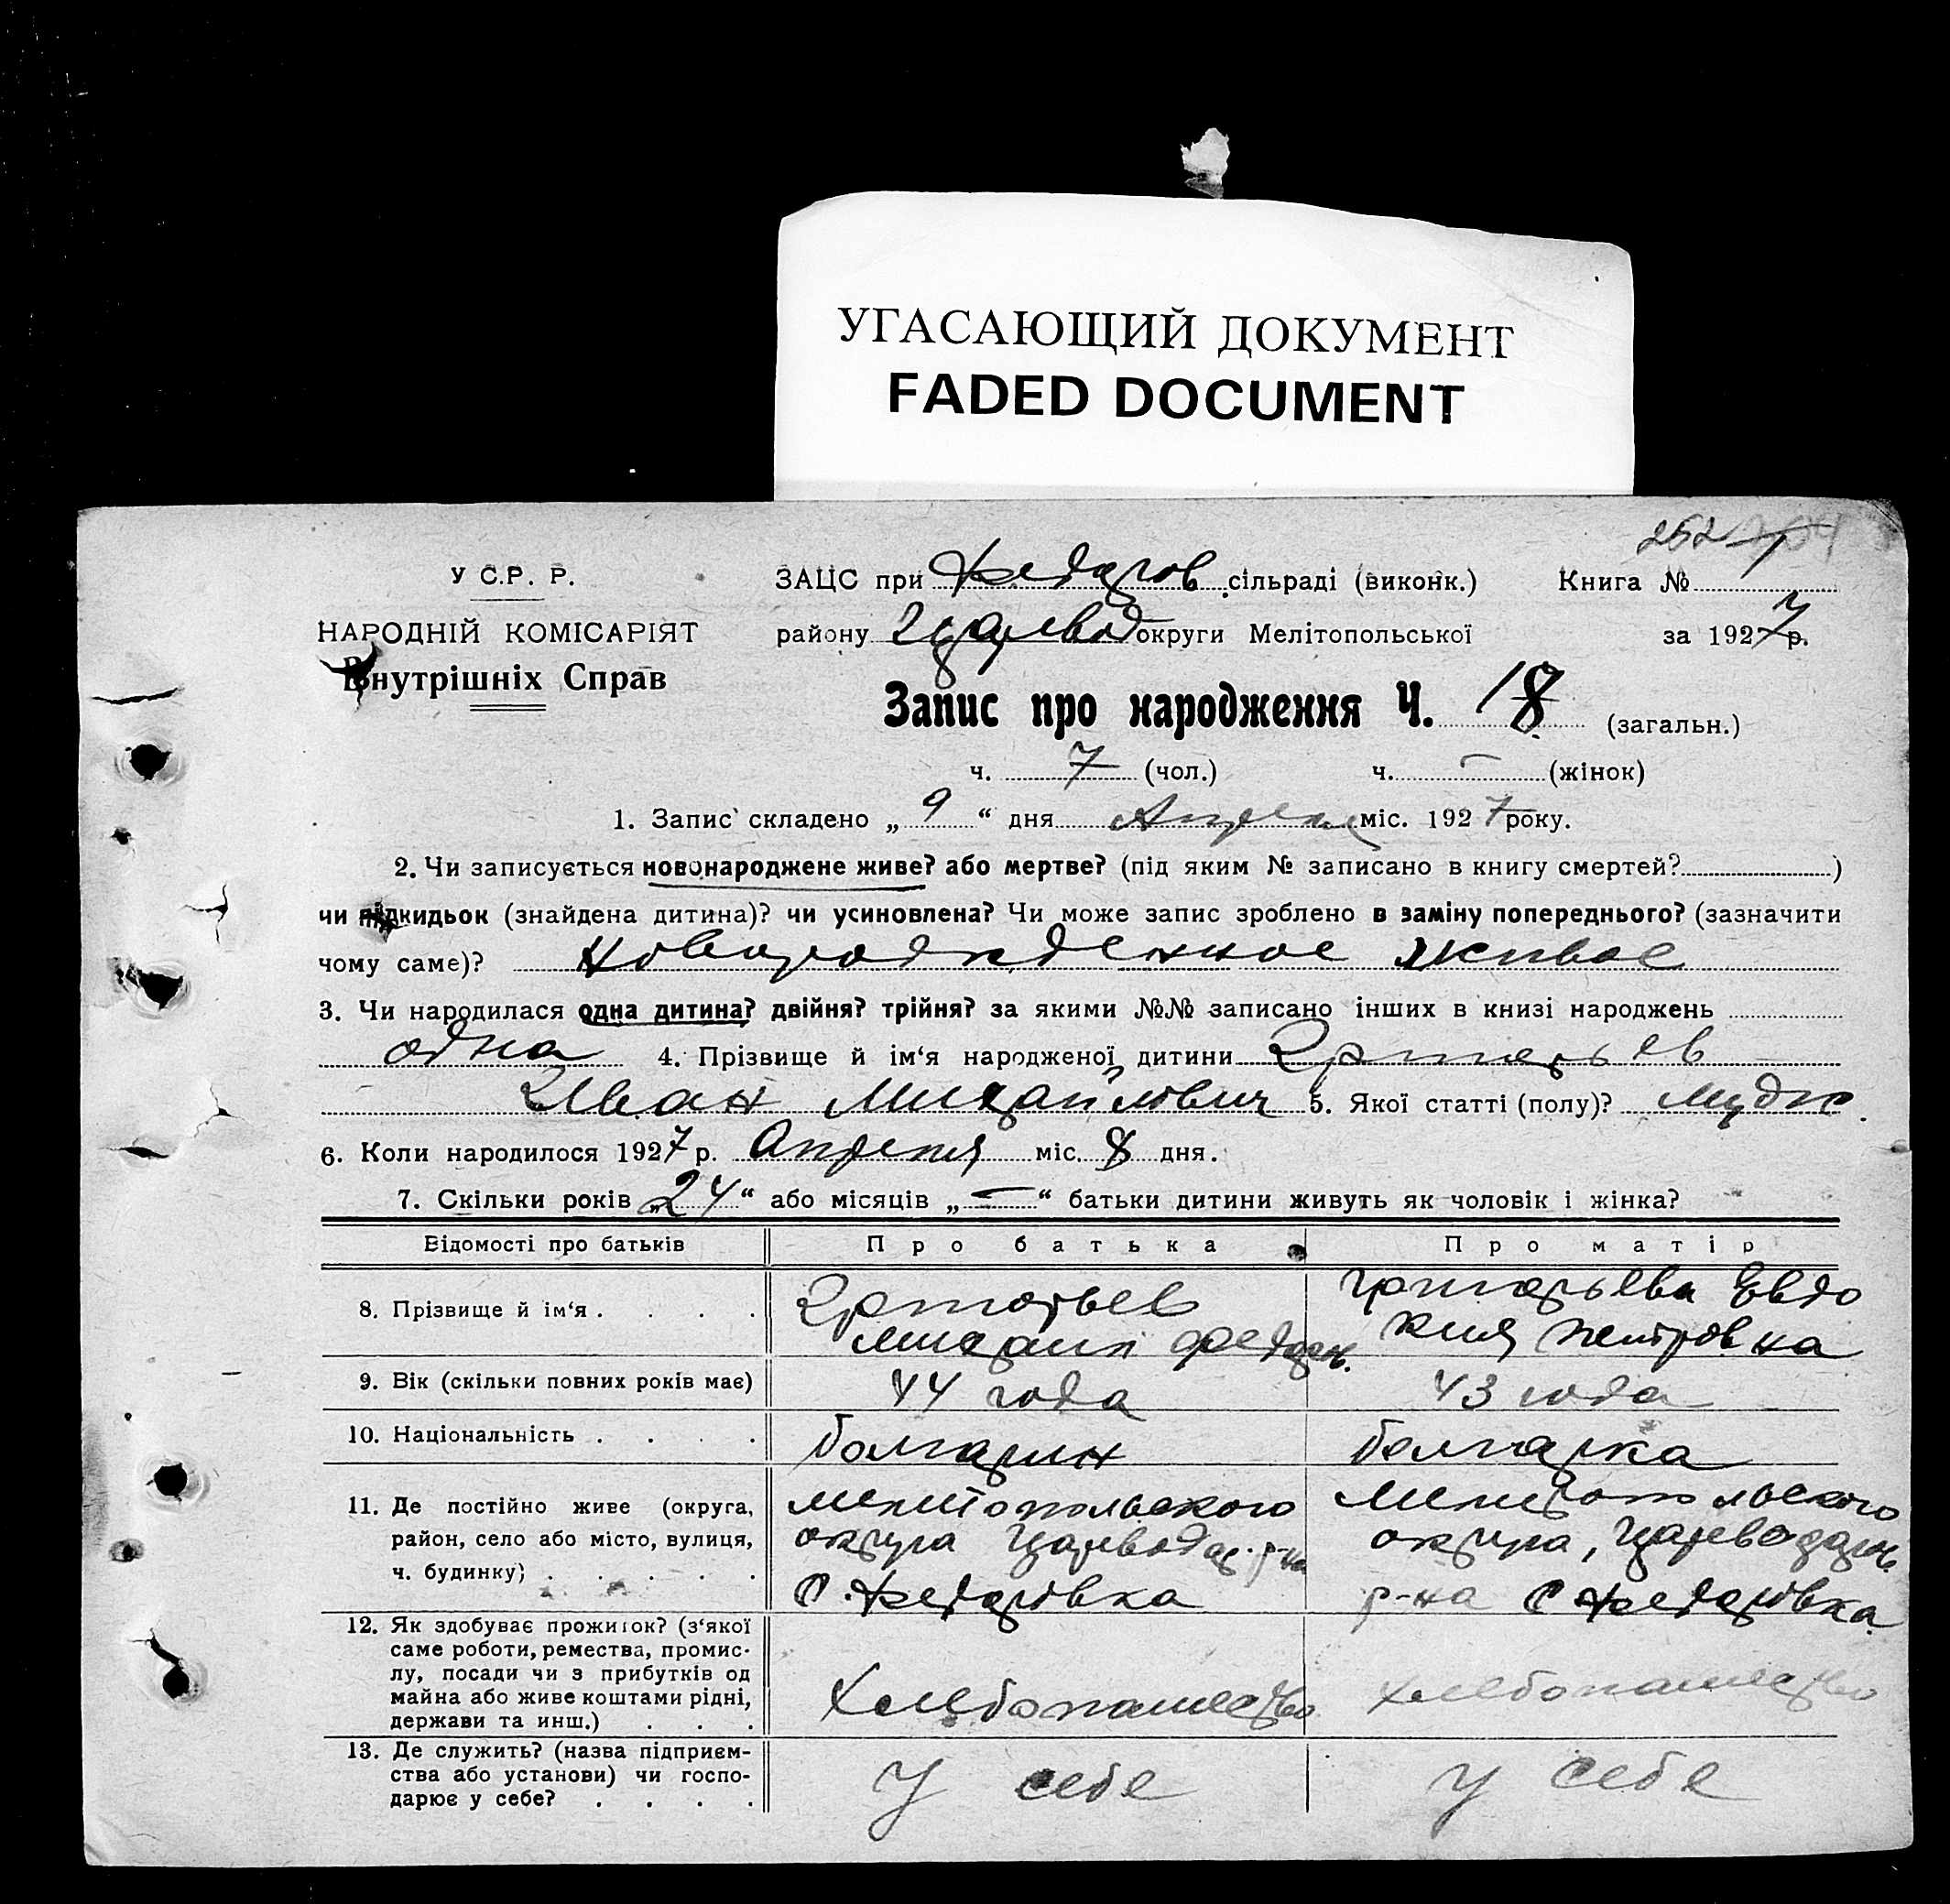 УГАСАЮЩИЙ ДОКУМЕНТ
FADED DOCUMENT
252
У С.Р. Р.
НАРОДНІЙ КОМІСАРІЯТ
Внутрішніх Справ
ЗАЦС при Федоров сільраді (виконк.) Книга №
району Цареводар округи Мелітопольської за 1927 р.
Запис про народження Ч. 18 (загальн.)
ч. 7 (чол.) ч. – (жінок)
1. Запис складено „ 9 “ дня Апреля міс. 1927 року.
2. Чи записується новонароджене живе? або мертве? (під яким № записано в книгу смертей? )
чи підкидьок (знайдена дитина)? чи усиновлена? Чи може запис зроблено в заміну попереднього? (зазначити
чому саме)? Новорожденное живое
3. Чи народилася одна дитина? двійня? трійня? за якими №№ записано інших в книзі народжень
одна 4. Прізвище й ім‘я народженої дитини Григорьев
Иван Михайлович 5. Якої статті (полу)? Мудж.
6. Коли народилося 1927 р. Апреля міс. 8 дня.
7. Скільки років „24“ або місяців „–“ батьки дитини живуть як чоловік і жінка?
Відомості про батьків Про батька Про матір
8. Прізвище й ім‘я . . . . Григорьев Михаил Федоров. Григорьева Евдокия Петровна
9. Вік (скільки повних років має) 44 года 43 года
10. Національність . . . . Болгарин болгарка
11. Де постійно живе (округа, Мелитопольского Мелитопольского
район, село або місто, вулиця, округа Цареводар. р-на округа, Цареводар.
ч. будинку) . . . . . С. Федоровка р-на С Федоровка
12. Як здобуває прожиток? (з‘якої
саме роботи, ремества, промис-
лу, посади чи з прибутків од
майна або живе коштами рідні, Хлебопашество Хлебопашество
держави та инш.) . . .
13. Де служить? (назва підприєм-
ства або установи) чи госпо- У себе У себе
дарює у себе? . . . .